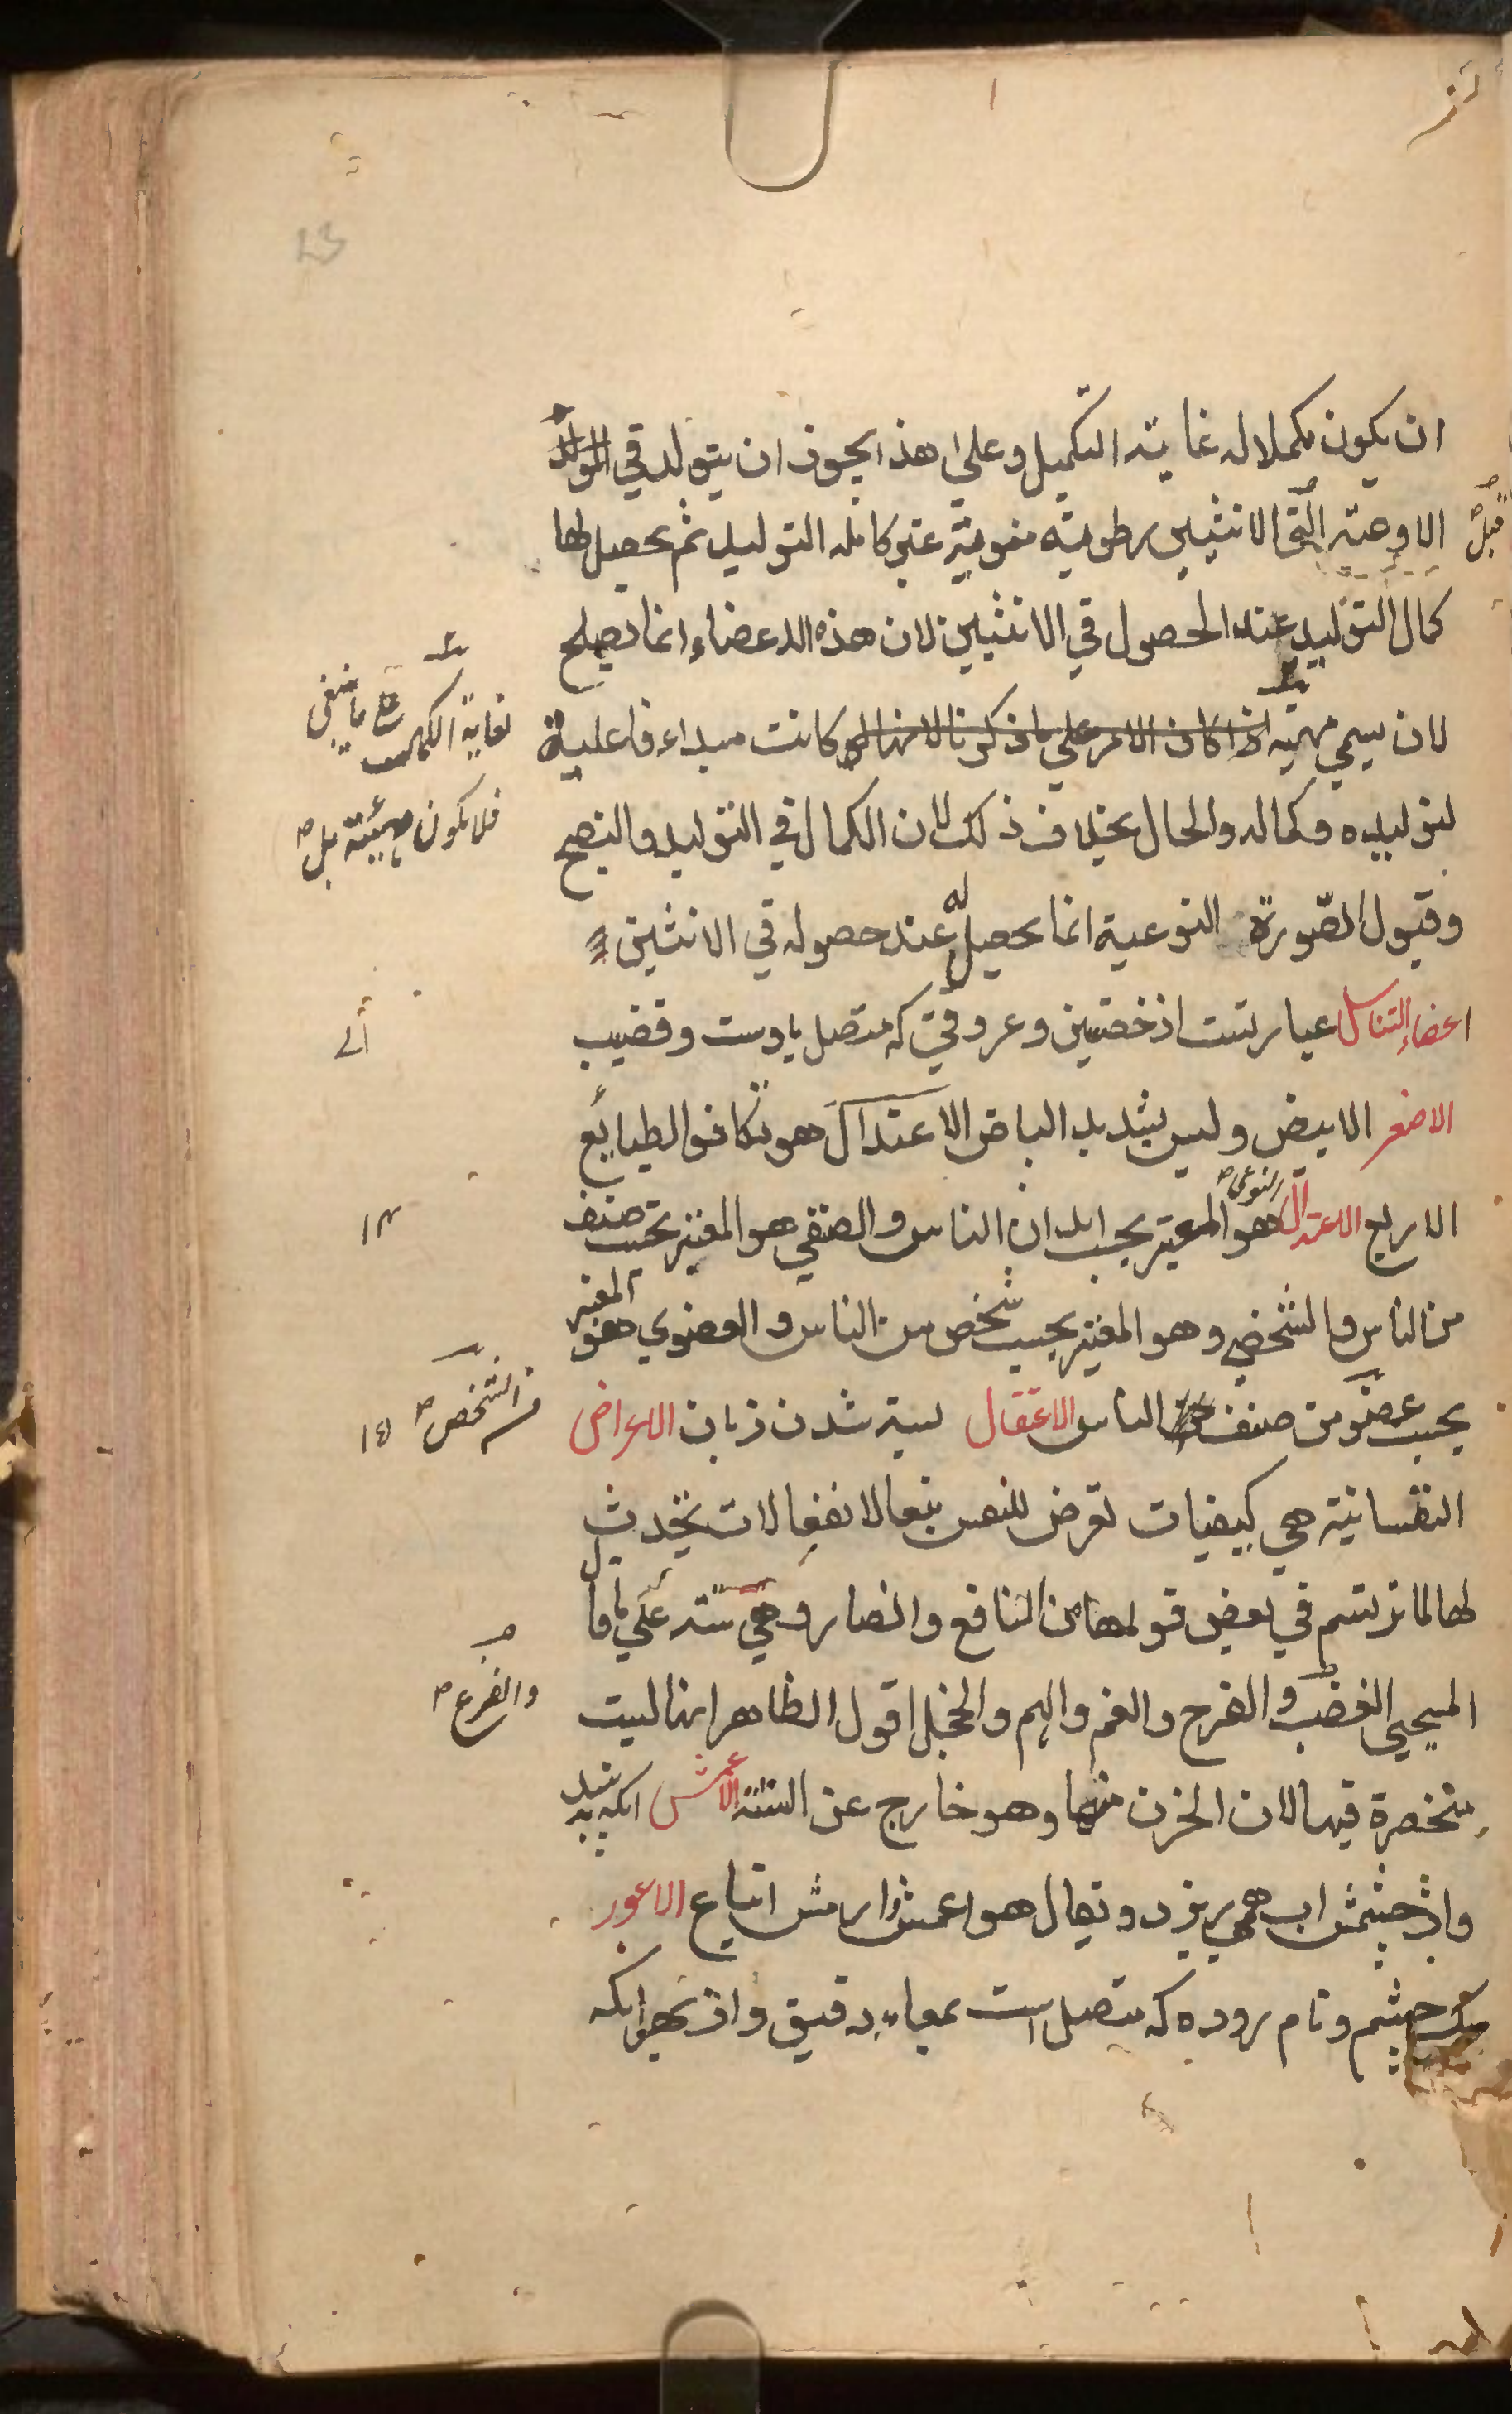 ان يكون مكملا له غاية التكميل وعلى هذا يجوز ان يتولد في
الاوعية التي قبل الانثيين رطوبة منوية غير كاملة التوليد ثم يحصل لها
كمال التوليد عند الحصول في الانثيين لان هذه الاعضاء انما يصلح
لان يسمي مهيئة اذا كان الامر علي ما ذكرنا لانها كانت مبداء فاعلية
لتوليده وكماله والحال بخلاف ذلك لان الكمال في التوليد والنضج
وقبول الصّورة النوعية انما يحصل له عند حصوله في الانثيين
اعضاء التناسل عبارتست از خصيتين وعروقي كه متصل باوست وقضيب
الاصفر الابيض وليس بشديد البياض الاعتدال هو تكافو الطبائع
الاربع الاعتدال النوعي هو المعتبر بحسب ابدان الناس والصنفي هو المعتبر بحسب صنف
من الناس والشخصي وهو المعتبر بحسب شخص من الناس والعضوي هو المعتبر
بحسب عضو من صنف الناس الاعتقال بسته شدن زبان الاعراض
النفسانية هي كيفيات تعرض للنفس تبعا لانفعالات تحدث
لها لما ترتسم في بعض قواها من النافع والضار وهي ستة علي ما قا
المسيحي الغضب والفرح والغم والهم والخجل اقول الظاهر انها ليست
منحصرة فيها لان الحزن منها وهو خارج عن الستة الاعمش انكه نبيند
واز چشمش اب همي ريزد ويقال هو اعمش ارمش اتباع الاعور
يك چشم ونام روده كه متصل است بمعاء دقيق واز بهر انكه
فلا يكون مهيئة بل
من الشخص
والفزع